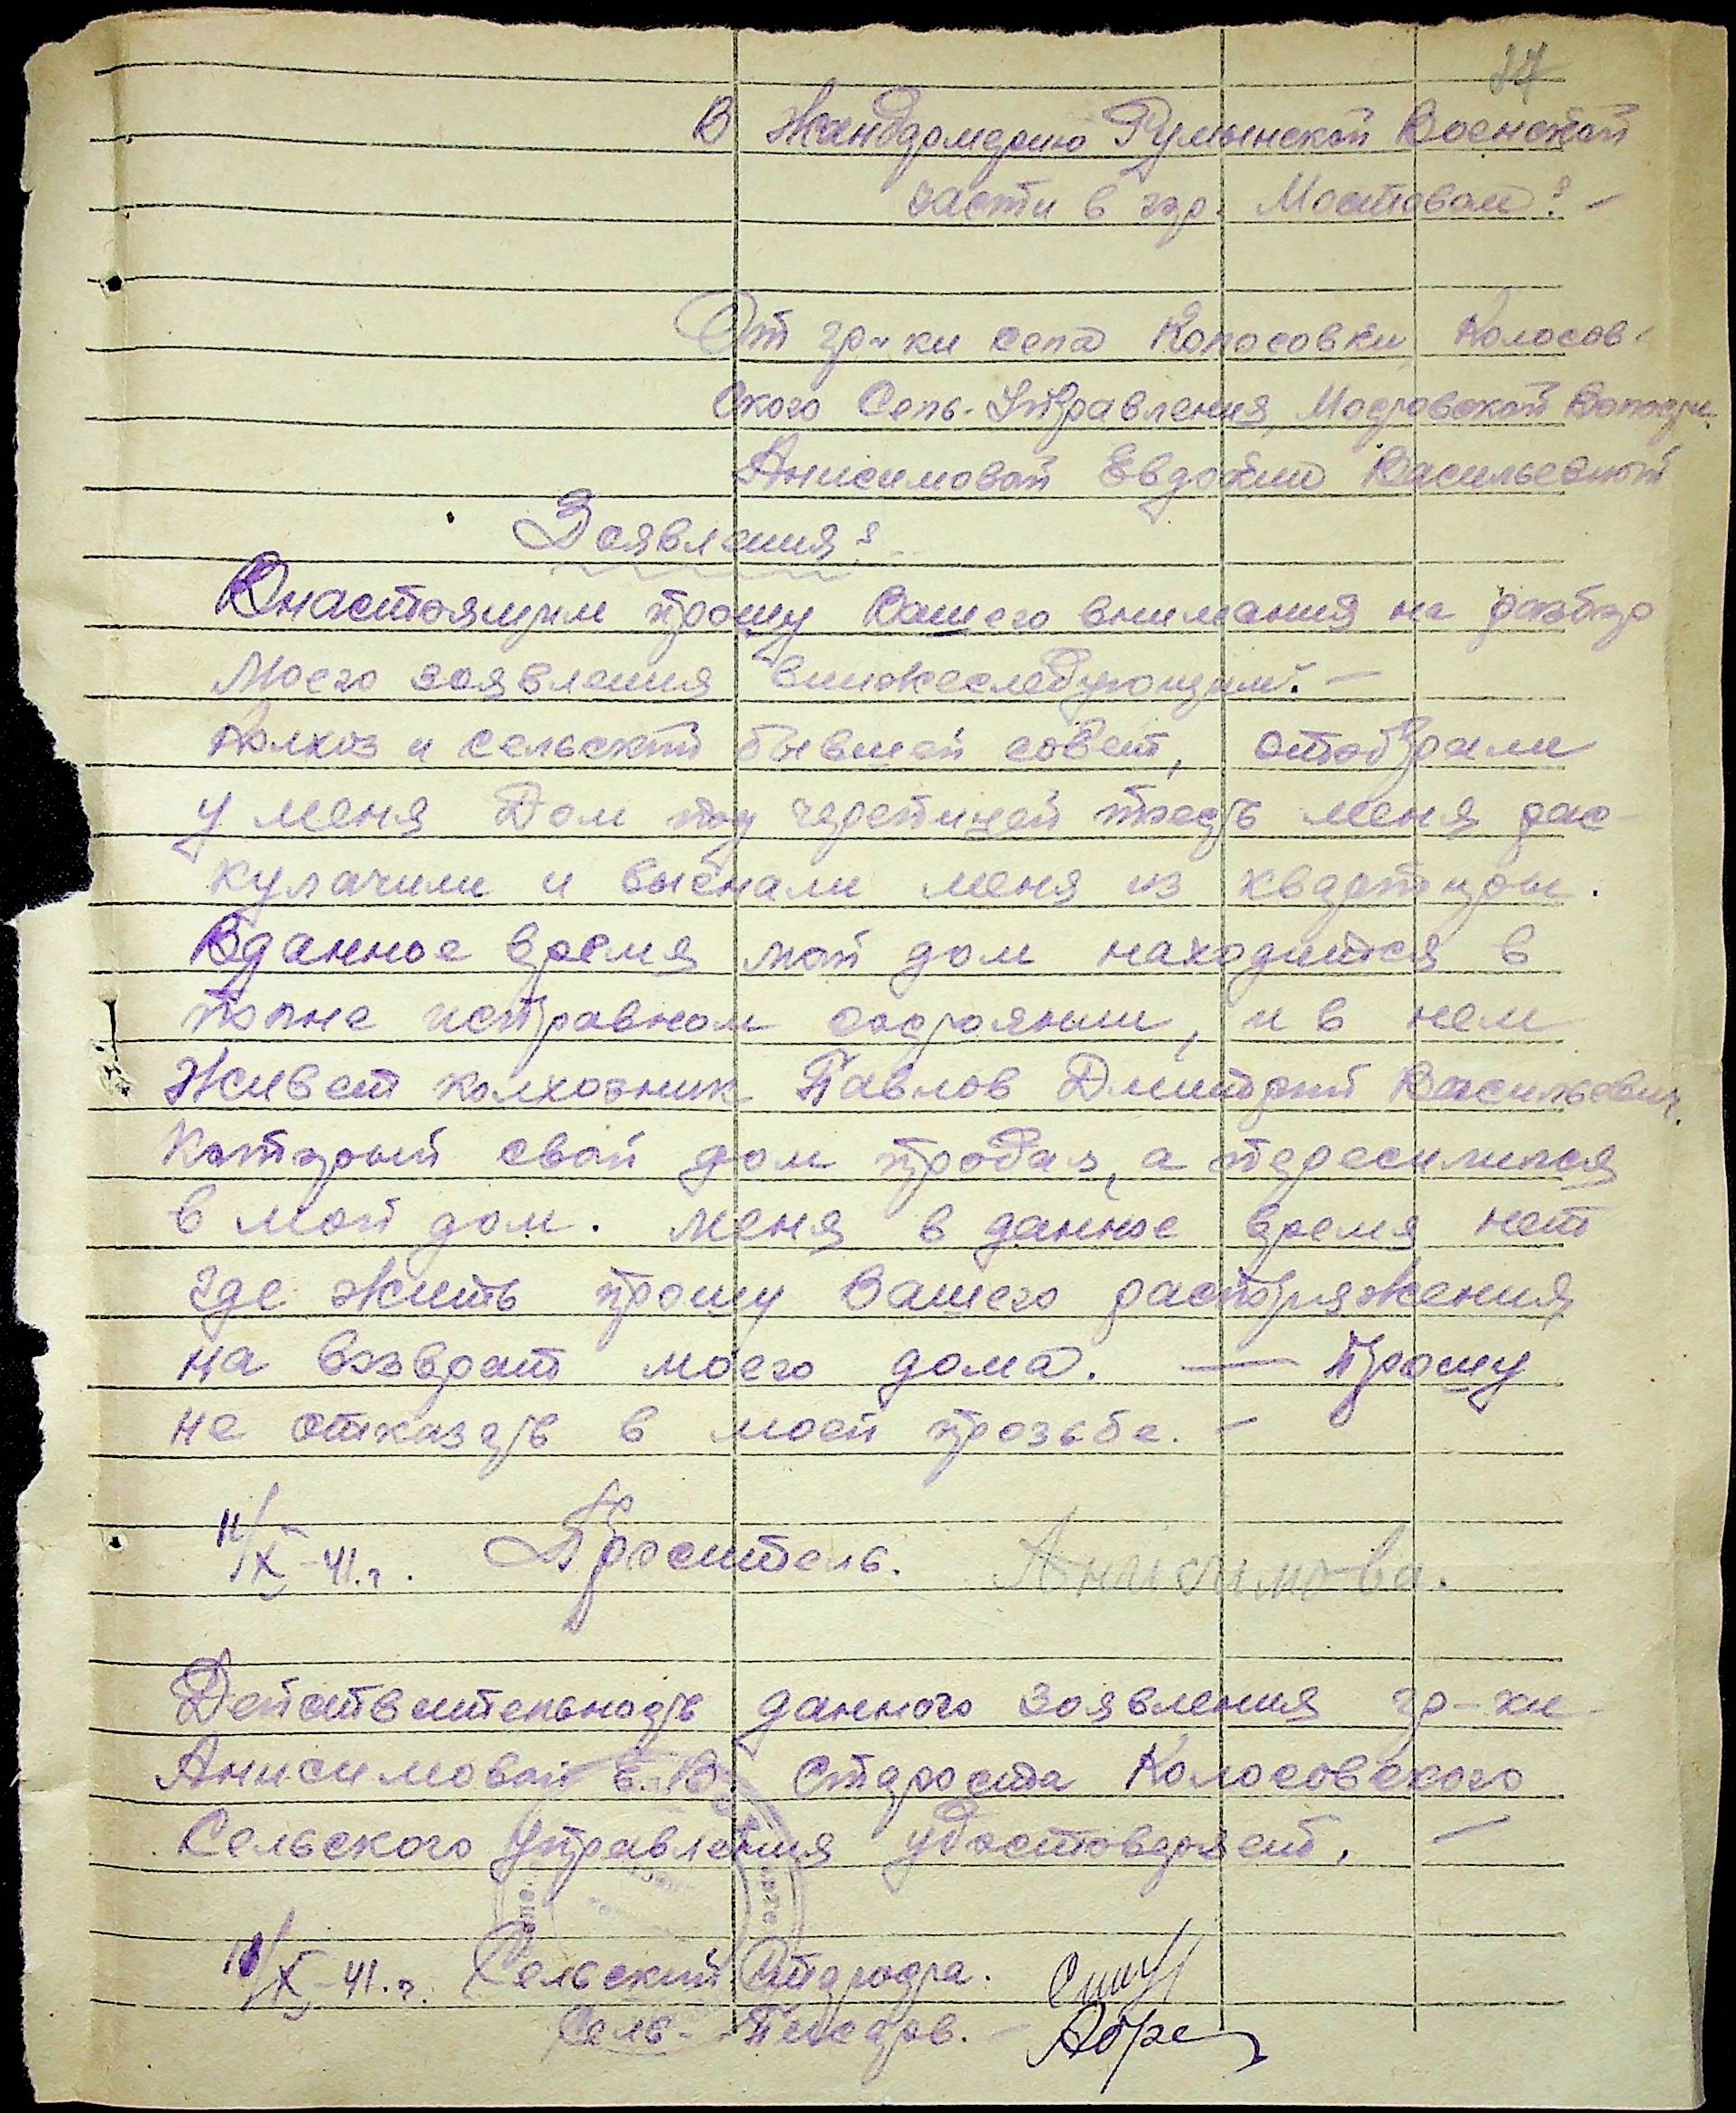 27
В Жандармерию Румынской Военской
части в гор. Мостовом:-
От гр-ки села Колосовки, Колосов-
ского Сель-Управления, Мостовской Волости
Анисимовой Евдокии Васильевной
Заявления:
Внастоящим прошу Вашего внимания на разбор
моего заявления внижеследующим:-
Колхоз и сельский бывшей совет, отобрали
у меня Дом под черепицей тоесть меня рас-
кулачили и выгнали меня из квартиры.
Вданное время мой дом находится в
полне исправном состоянии, и в нем
живет колхозник Павлов Дмитрий Васильевич.
Который свой дом продал, а переселился
в мой дом. меня в данное время нет
где жить прошу Вашего распоряжения
на возврат моего дома. — Прошу
не отказать в моей прозьбе. -
11/IX-41.г. Проситель. Анисимова.
Действительность данного заявления гр-ки
Анисимовой Е. В. Староста Колосовского
Сельского Управления удостоверяет. —
/X-41.г. Сельский Староста.
Сель- Писарь. -